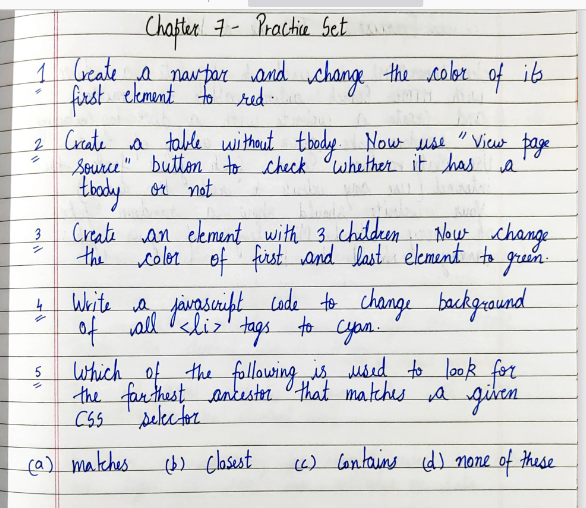 Chapter 7 - Practice Set
1 Create a navbar and change the color of its
first element to red.
2 Create a table without tbody. Now use "View page
source" button to check whether it has a
tbody or not
3 Create an element with 3 children. Now change
the color of first and last element to green.
4 Write a javascript code to change background
of all <li> tags to cyan.
5 Which of the following is used to look for
the farthest ancestor that matches a given
CSS selector
(a) matches (b) Closest (c) Contains (d) none of these